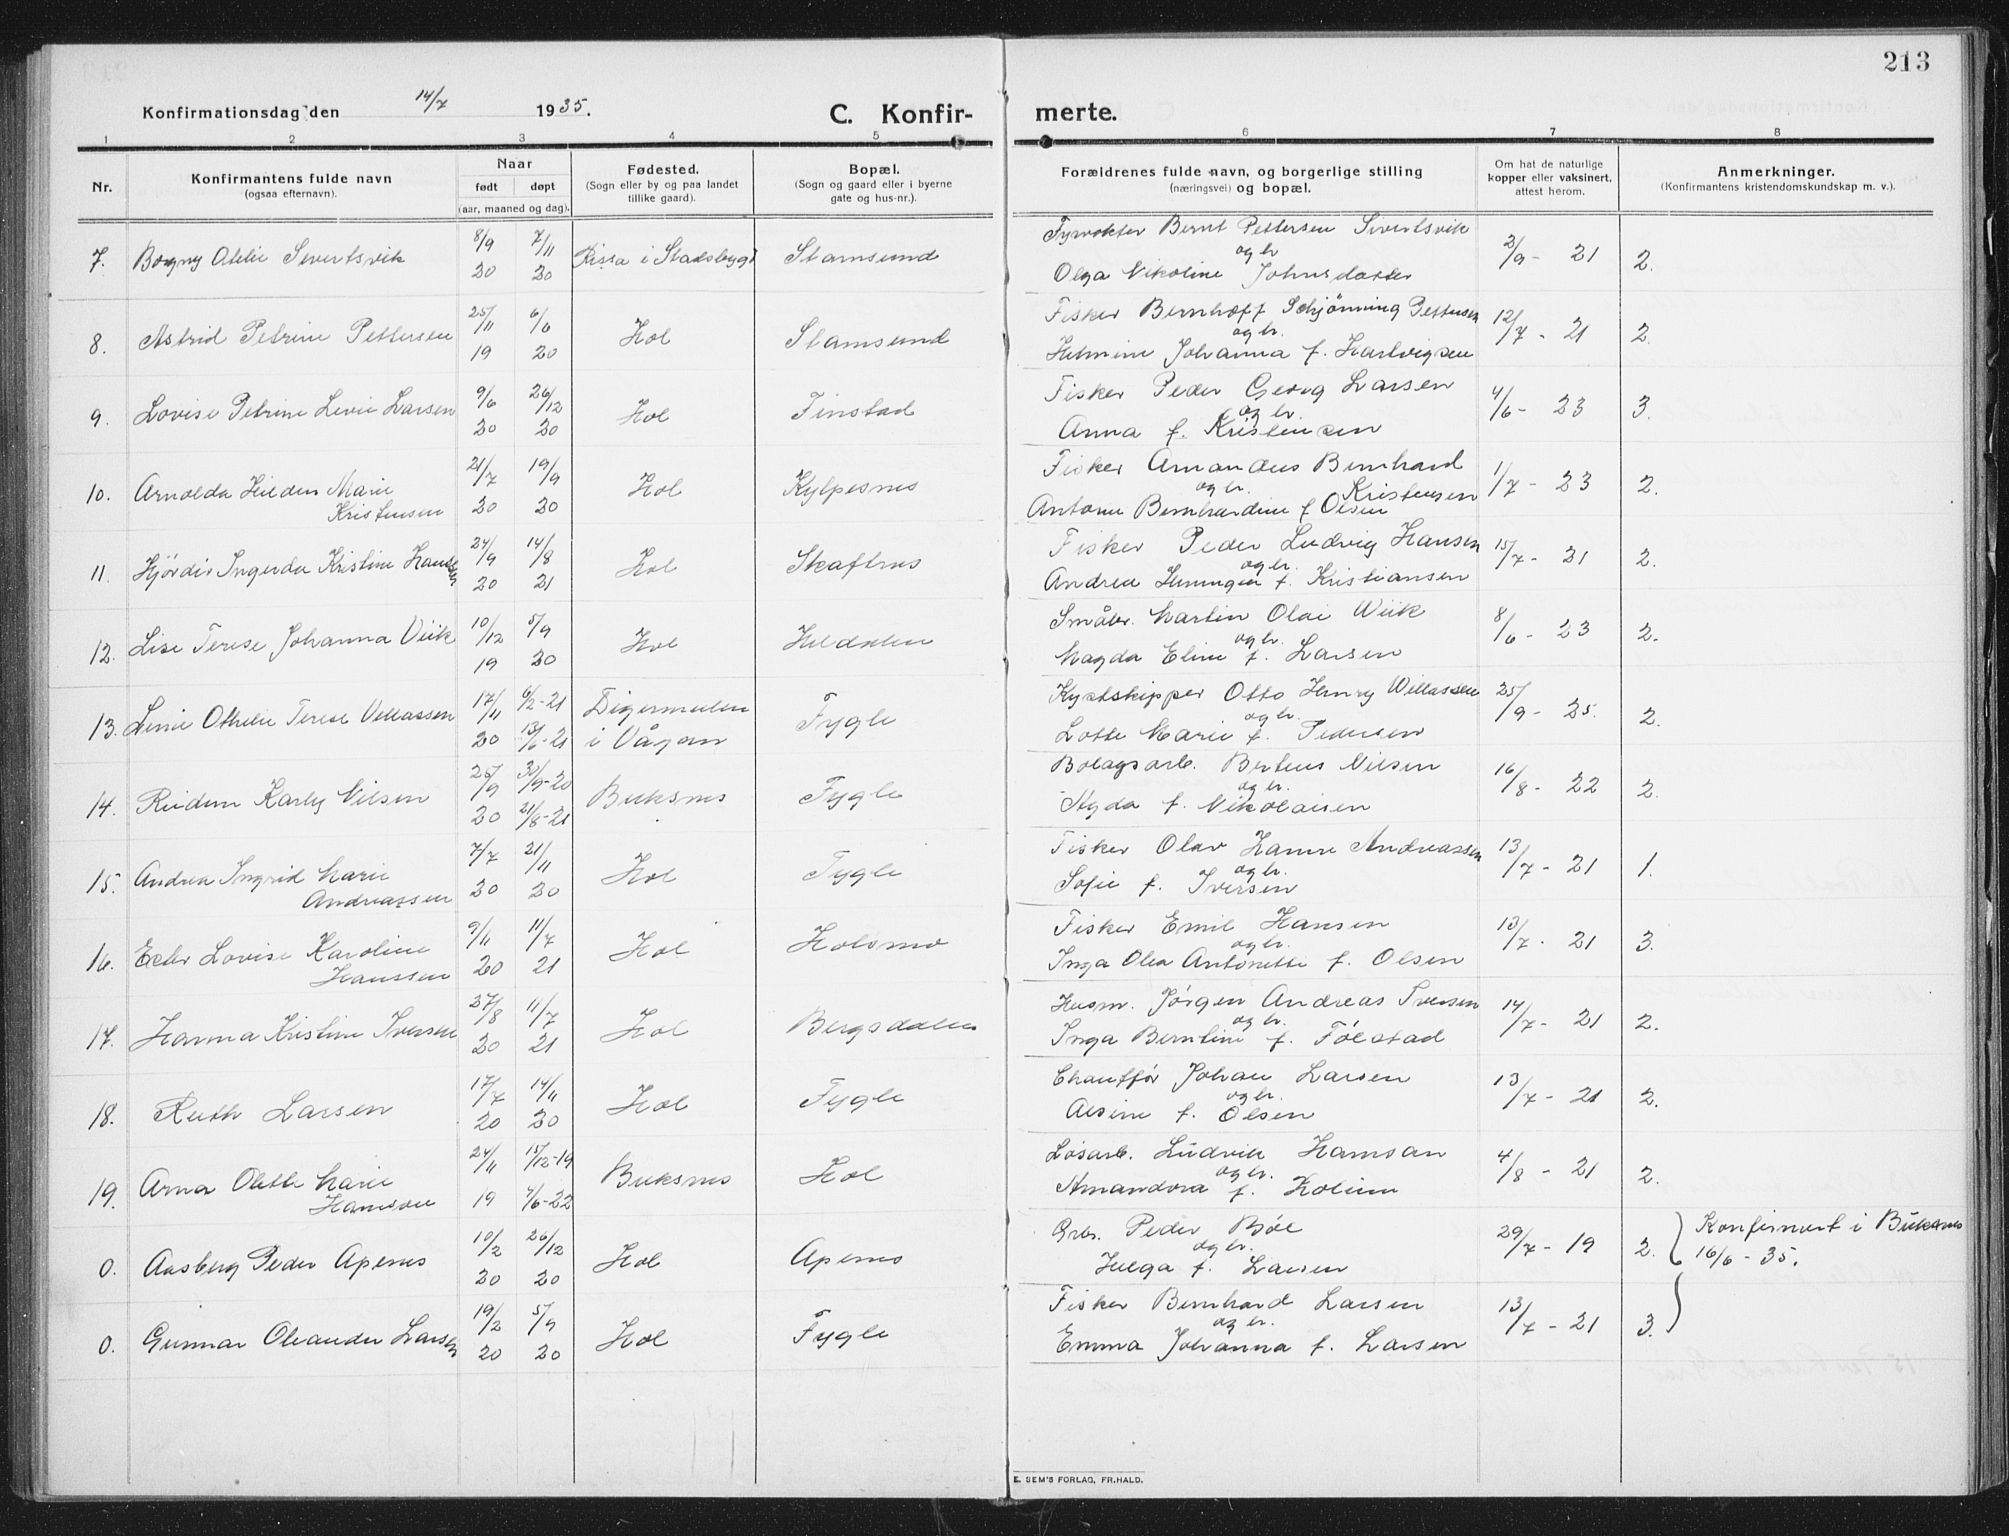 213
Konfirmationsdag den 14/7 1935.
C. Konfir-
merte.
1 2 3 4 5 6 7 8
Nr.
Konfirmantens fulde navn
(ogsaa efternavn).
Naar
født døpt
(aar, maaned og dag).
Fødested.
(Sogn eller by og paa landet
tillike gaard).
Bopæl.
(Sogn og gaard eller i byerne
gate og hus-nr.).
Forældrenes fulde navn, og borgerlige stilling
(næringsvei) og bopæl.
Om hat de naturlige
kopper eller vaksinert,
attest herom.
Anmerkninger.
(Konfirmantens kristendomskundskap m. v.).
7. Borgny Otelie Sivertsvik 8/9 20 7/11 20 Rissa i Stadsbygd Stamsund
Fyrvokter Bernt Pettersen Sivertsvik
og h.
Olga Nikoline Johnsdatter
2/9 - 21 2.
8. Astrid Petrine Pettersen 25/11 19 6/6 20 Hol Stamsund
Fisker Bernhoff Schjönning Pettersen
og h.
Helmine Johanna f. Hartvigsen
12/7 - 21 2.
9. Lovise Petrine Levie Larsen 9/6 20 26/12 20 Hol Finstad
Fisker Peder Georg Larsen
og h.
Anna f. Kristensen
4/6 - 23 3.
10. Arnolda Hilden Marie
Kristensen 21/7 20 19/9 20 Hol Kylpesnes
Fisker Amandus Bernhard
og h. Kristensen
Antone Bernhardine f Olsen
1/7 - 23 2.
11. Hjördis Ingerda Kristine Hansen 24/9 20 14/8 21 Hol Skaftnes
Fisker Peder Ludvig Hansen
og h.
Andrea Henningine f. Kristiansen
15/7 - 21 2.
12. Lise Terese Johanna Viik 10/12 19 5/9 20 Hol Heldalen
Småbr. Martin Olai Wiik
og h.
Magda Eline f. Larsen
8/6 - 23 2.
13. Linie Othelie Terese Villassen 17/11 20 6/2-21 13/6-21 Digermulen
i Vågan Fygle
Kystskipper Otto Henry Willassen
og h.
Lotte Marie f. Pedersen
25/9 - 25. 2.
14. Reidun Karly Nilsen 25/9 20 30/9-20 21/8-21 Buksnes Fygle
Bolagsarb. Berteus Nilsen
og h.
Agda f. Nikolaisen
16/8 - 22 2.
15. Andrea Ingrid Marie
Andreassen 7/7 20 21/11 20 Hol Fygle
Fisker Olav Hamre Andreassen
og h.
Sofie f. Iversen
13/7 - 21 1.
16. Ester Lovise Karoline
Hanssen 9/11 20 11/7 21 Hol Holsmo
Fisker Emil Hansen
og h.
Inga Olea Antonette f. Olsen
13/7 - 21 3.
17. Hanna Kristine Iversen 27/8 20 11/7 21 Hol Bergsdalen
Husm. Jörgen Andreas Iversen
og h.
Inga Berntine f. Fölstad
14/7 - 21 2.
18. Ruth Larsen 17/7 20 14/11 20 Hol Fygle
Chaufför Johan Larsen
og h.
Alsine f. Olsen
13/7 - 21 2.
19. Arna Olette Marie
Hamsøn 24/11 19 15/12-19 4/6-22 Buksnes Hol
Løsarb. Ludvik Hamsan
og h.
Amandora f. Holine
4/8 - 21 2.
0. Aasberg Peder Apenes 10/2 20 26/12 20 Hol Apenes
Grb. Peder Böe
og h.
Helga f. Larsen
29/7 - 19 2. Konfirmert i Buksnes
16/6 - 35.
0. Gunnar Oleander Larsen 19/2 20 5/9 20 Hol Fygle
Fisker Bernhard Larsen
og h.
Emma Johanna f. Larsen
13/7 - 21 3.
E. SEM'S FORLAG, FR.HALD.